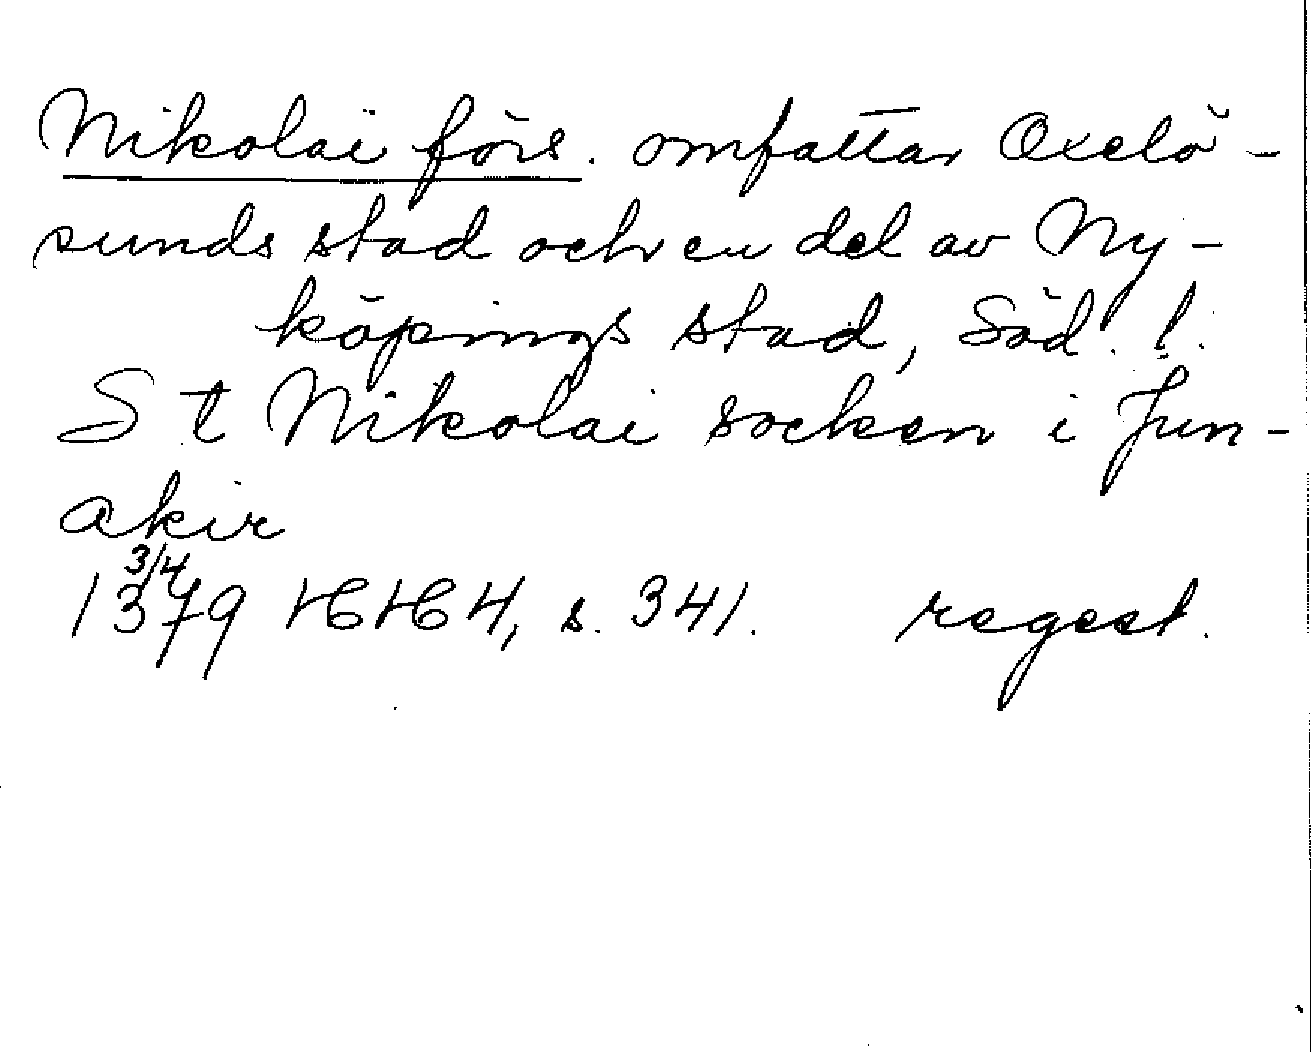 Nikolai förs. omfattar Oxelö-
sunds stad och en del av Ny-
köpings stad, Söd. l.
S t Nikolai socken i Jun-
akir
3/4
1379 HH 4, s. 341. regest.